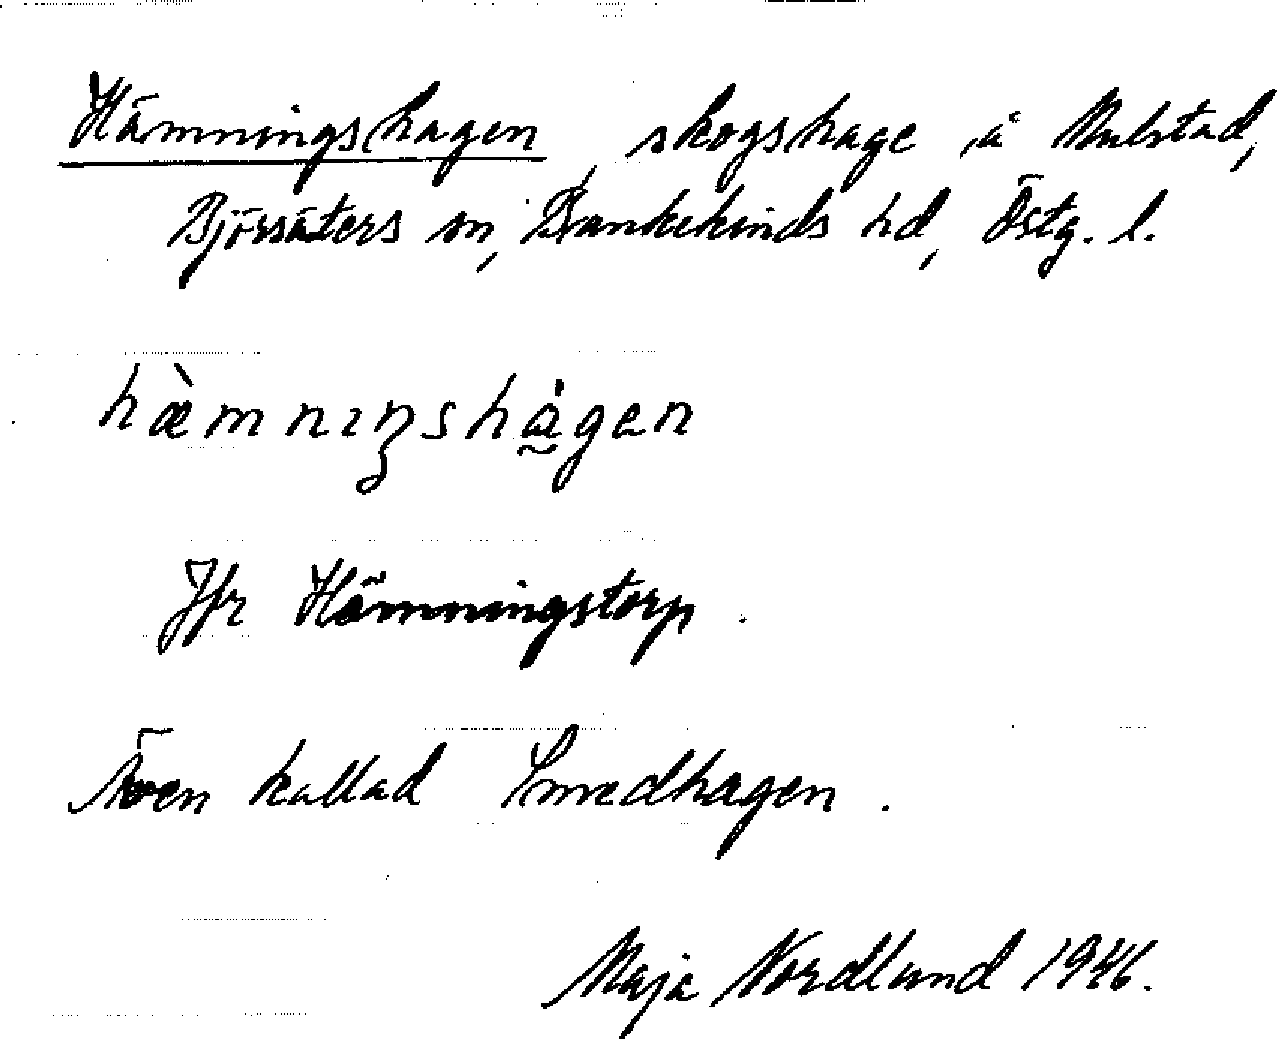 Hämningshagen, skogshage å Mulstad,
Björsäters sn, Bankekinds hd, Östg. l.
hæ̀mnıŋshå̰gen
Jfr Hämningstorp.
Även kallad Smedhagen.
Maja Nordlund 1946.